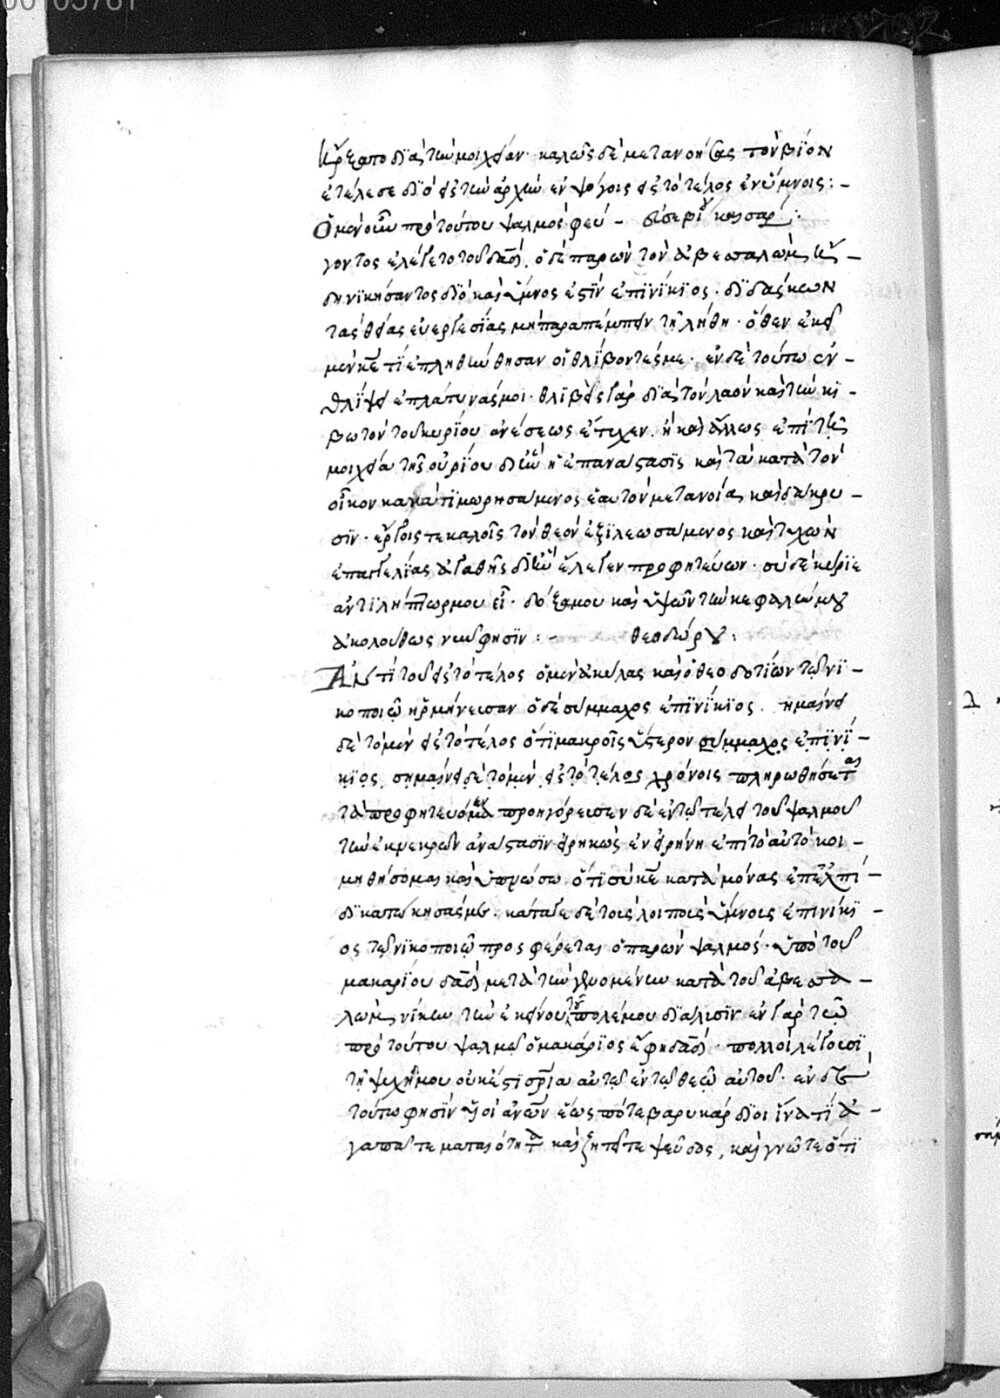 καλῶς δὲ μετανοήσας τὸν βίον
ἐτέλεσε διὸ εἰς τὴν ἀρχὴν ἐν ψόγοις εἰς τὸ τέλος ἐν ὕμνοις :-
Ὁ μὲν οὖν πρὸ τούτου ψαλμὸς φεύ-
γοντος ἐλέγετο τοῦ δαδ. ὁ δὲ παρὼν τὸν ἀβεσαλὼμ
δη νικήσαντος διὸ καὶ ὕμνος ἐστὶν ἐπινίκιος. διδάσκων
τὰς θείας εὐεργεσίας μὴ παραπέμπειν τῇ λήθῃ. ὅθεν ἐκεῖ
μὲν κε τί ἐπληθύνθησαν οἱ θλίβοντές με. ἐν δὲ τούτω ἐν
θλίψει ἐπλάτυνάς μοι. θλιβεὶς γὰρ διὰ τὸν λαὸν καὶ τὴν κι-
βωτὸν τοῦ κυρίου ἀνέσεως ἔτυχεν. ἢ καὶ ἄλλως ἐπὶ τῇ
μοιχεία τῆς οὐρίου δι' ὧν ἡ ἐπανάστασις καὶ τὰ κατὰ τὸν
οἶκον κακὰ τιμωρησάμενος ἑαυτὸν μετανοίᾳ καὶ δάκρυ-
σιν. ἔργοις τε καλοῖς τὸν θεὸν ἐξιλεωσάμενος καὶ τυχὼν
ἐπαγγελίας ἀγαθῆς δι' ὧν ἔλεγεν προφητεύων. σὺ δὲ κύριε
ἀντιλήπτωρ μου εἶ. δόξα μου καὶ ὑψῶν τὴν κεφαλήν μου
ἀκολούθως νῦν φησιν :- θεοδώρου :
Ἀντὶ τοῦ εἰς τὸ τέλος ὁ μὲν ἀκύλας καὶ ὁ θεοδοτίων τῷ νι-
κοποιῷ ἡρμήνευσαν ὁ δὲ σύμμαχος ἐπινίκιος. σημαίνει
δὲ τὸ μὲν εἰς τὸ τέλος ὅτι μακροῖς ὕστερον σύμμαχος ἐπινί-
κιος, σημαίνει δὲ τὸ μὲν εἰς τὸ τέλος χρόνοις πληρωθήσεται
τὰ προφητευόμενα προηγόρευσεν δὲ ἐν τῷ τέλει τοῦ ψαλμοῦ
τὴν ἐκ νεκρῶν ἀνάστασιν εἰρηκὼς ἐν εἰρήνη ἐπὶ τὸ αὐτὸ κοι-
μηθήσομαι καὶ ὑπνώσω ὅτι σὺ κε κατὰ μόνας ἐπ' ἐλπί-
δι κατώκησάς με. κατὰ δὲ τοὺς λοιποὺς ὕμνοις ἐπινίκι-
ος τῷ νικοποιῷ προσφέρεται ὁ παρὼν ψαλμός. ὑπὸ τοῦ
μακαρίου δαδ μετὰ τὴν γενομένην κατὰ τοῦ ἀβεσα-
λὼμ νίκην τὴν ἐκείνου τοῦ πολέμου διάλυσιν ἐν γὰρ τῷ
πρὸ τούτου ψαλμῷ ὁ μακάριος ἔφη δαδ. πολλοὶ λέγουσι
τῇ ψυχῇ μου οὐκ ἔστι σρία αὐτῷ ἐν τῷ θεῷ αὐτοῦ. ἐν δὲ
τούτω φησὶν υἱοὶ ἀνων ἕως πότε βαρυκάρδιοι ἵνα τί ἀ-
γαπᾶτε ματαιότητα καὶ ζητεῖτε ψεῦδος, καὶ γνῶτε ὅτι